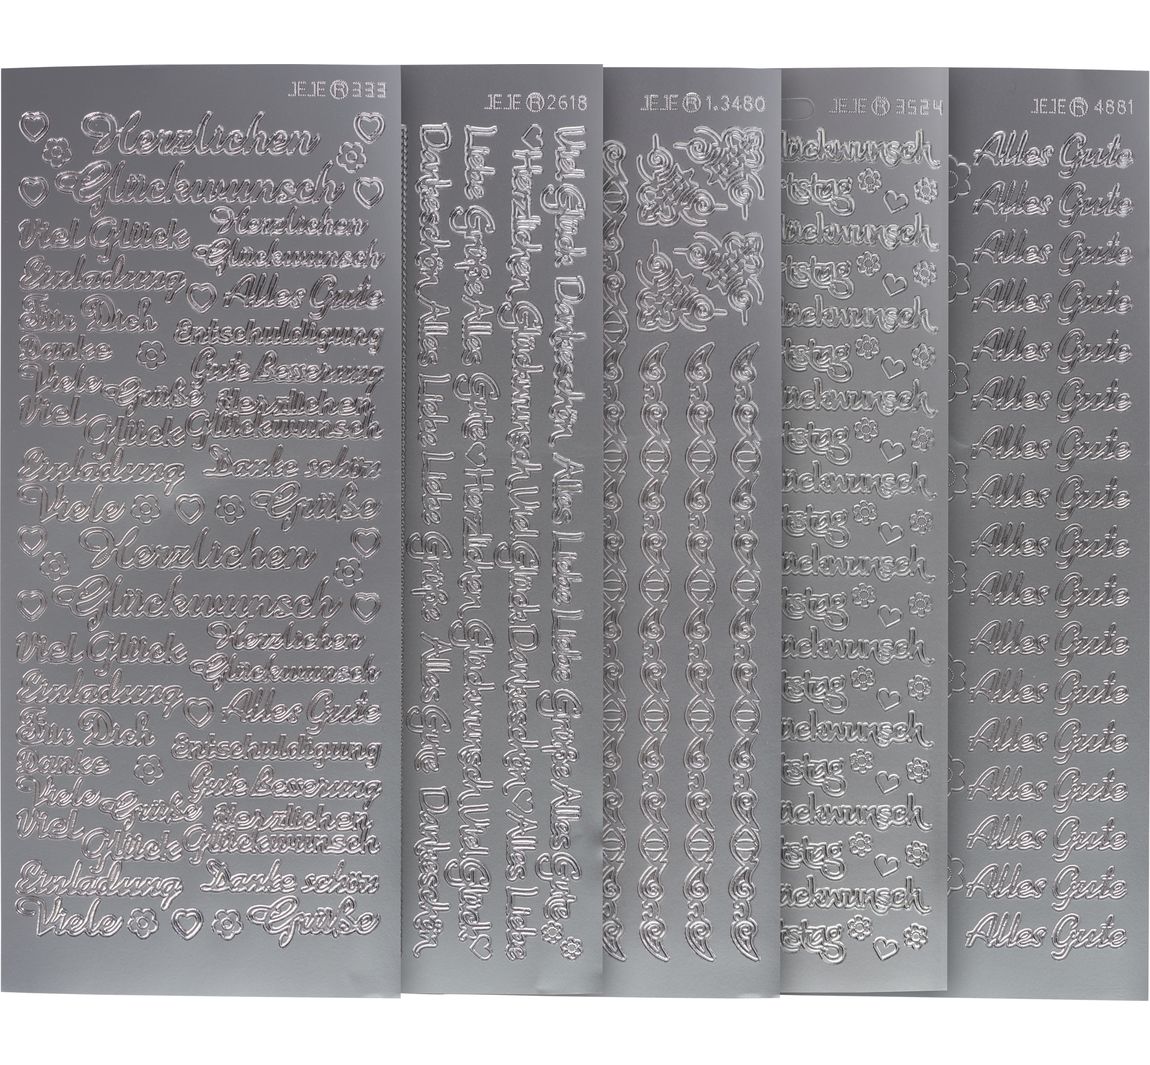 JEJE ® 333
Herzlichen
Glückwunsch
Viel Glück
Herzlichen
Glückwunsch
Einladung
Alles Gute
Für Dich
Entschuldigung
Danke
Gute Besserung
Viele Grüße
Herzlichen
Viel Glück
Glückwunsch
Einladung
Danke schön
Viele Grüße
Herzlichen
Glückwunsch
Viel Glück
Herzlichen
Glückwunsch
Einladung
Alles Gute
Für Dich
Entschuldigung
Danke
Gute Besserung
Viele Grüße
Herzlichen
Viel Glück
Glückwunsch
Einladung
Danke schön
Viele Grüße
JEJE ® 2618
Viel Glück Dankeschön Alles Liebe Liebe Grüße Alles Gute
Herzlichen Glückwunsch Viel Glück Dankeschön Alles Liebe
Liebe Grüße Alles Gute Herzlichen Glückwunsch Viel Glück
Dankeschön Alles Liebe Liebe Grüße Alles Gute Dankeschön
JEJE ® 1.3480
JEJE ® 3524
ückwunsch
tstag
ückwunsch
tstag
ückwunsch
tstag
ückwunsch
tstag
ückwunsch
tstag
ückwunsch
tstag
ückwunsch
tstag
ückwunsch
tstag
ückwunsch
tstag
ückwunsch
tstag
JEJE ® 4881
Alles Gute
Alles Gute
Alles Gute
Alles Gute
Alles Gute
Alles Gute
Alles Gute
Alles Gute
Alles Gute
Alles Gute
Alles Gute
Alles Gute
Alles Gute
Alles Gute
Alles Gute
Alles Gute
Alles Gute